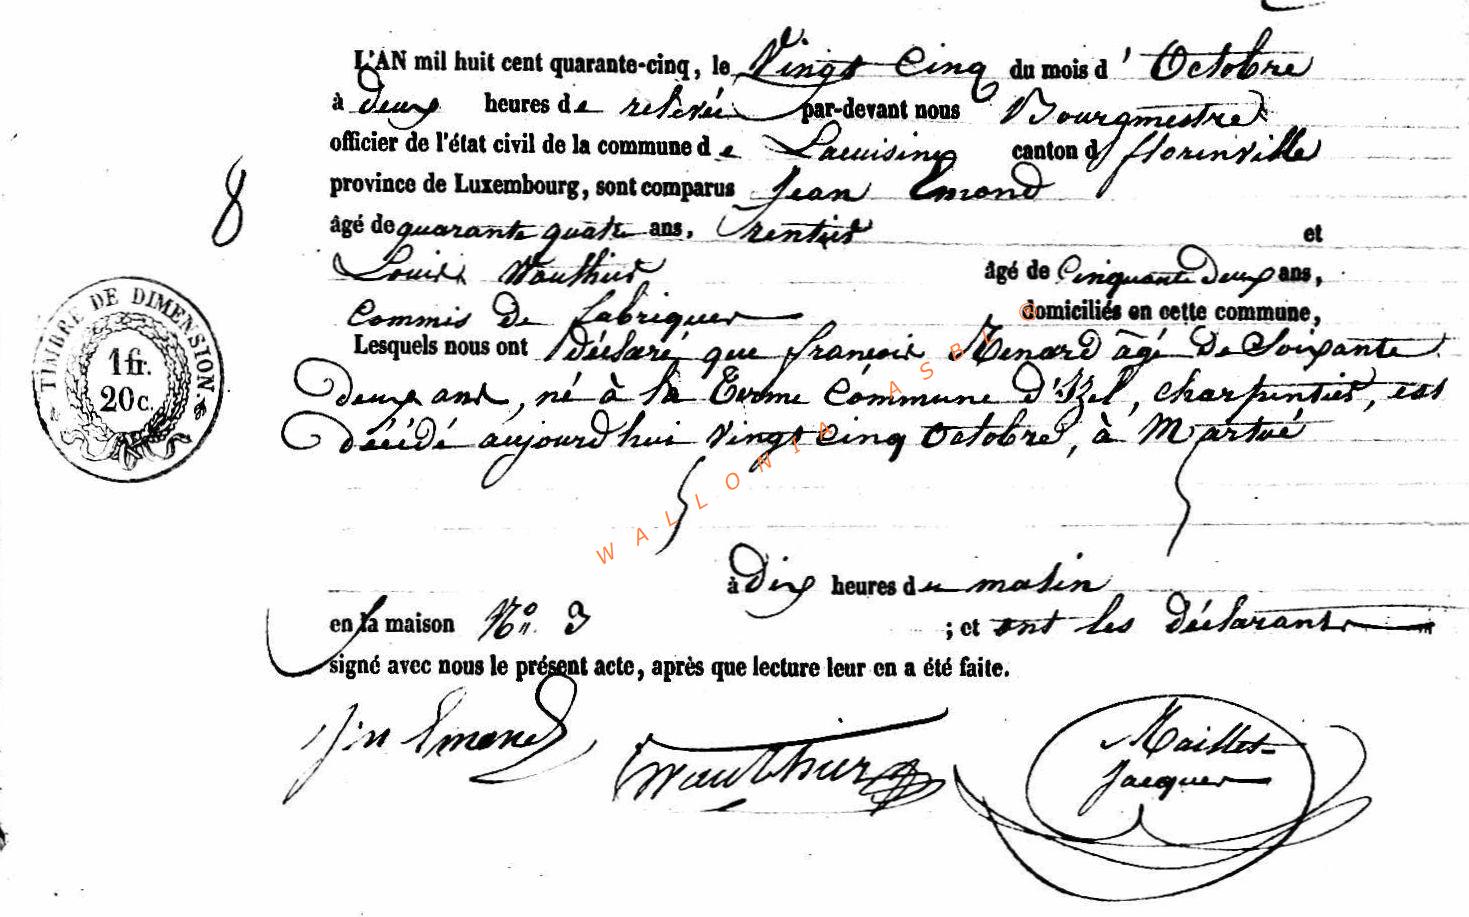 L'AN mil huit cent quarante-cinq, le Vingt Cinq du mois d' Octobre
à deux heures de relevée par-devant nous Bourgmestre
officier de l'état civil de la commune de Lacuisine canton d florenville
province de Luxembourg, sont comparus Jean Emond
8
âgé de quarante quatre ans, rentier et
Louis Wauthier âgé de Cinquante deux ans,
Commis de fabriques domiciliés en cette commune,
Lesquels nous ont déclaré que françois Menard âgé De Soixante
Deux ans, né à la terme Commune d'Izel, charpentier, est
Décédé aujourd'hui vingt cinq Octobre, à Martué
à Dix heures du matin
en la maison No. 3 ; et ont les déclarants
signé avec nous le présent acte, après que lecture leur en a été faite.
Jn Emond Wauthier Maillet-
Jacques
TIMBRE DE DIMENSION.
1 fr.
20 c.
WALLONIA ASBL ©